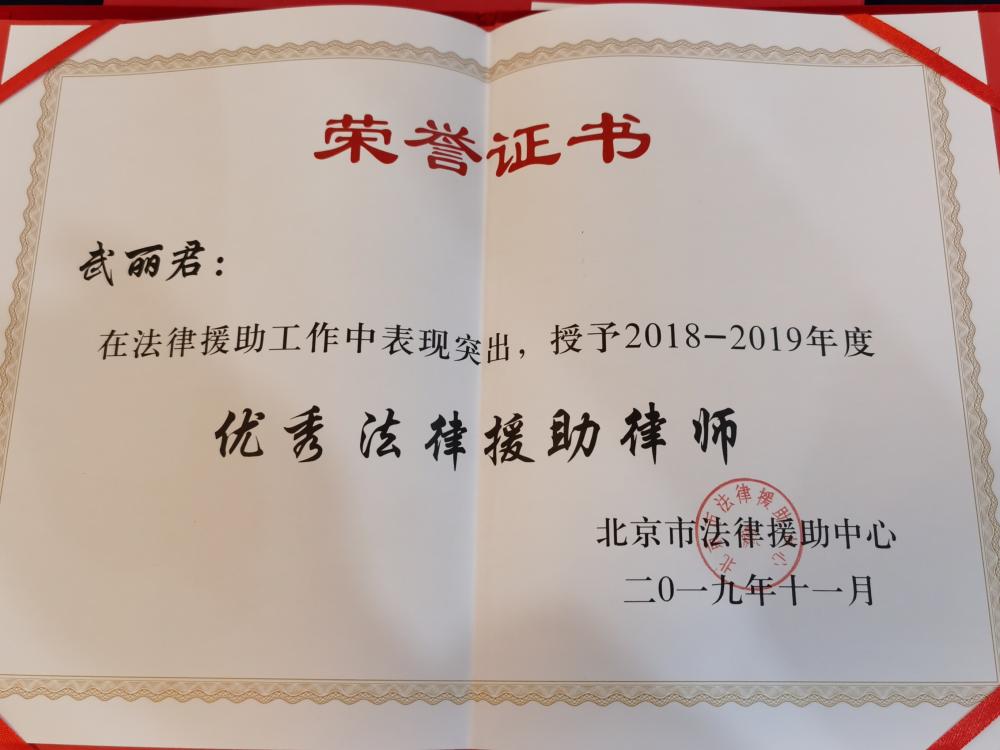 荣誉证书
武丽君：
在法律援助工作中表现突出，授予2018-2019年度
优秀法律援助律师
北京市法律援助中心
二0一九年十一月
北京市法律援助中心